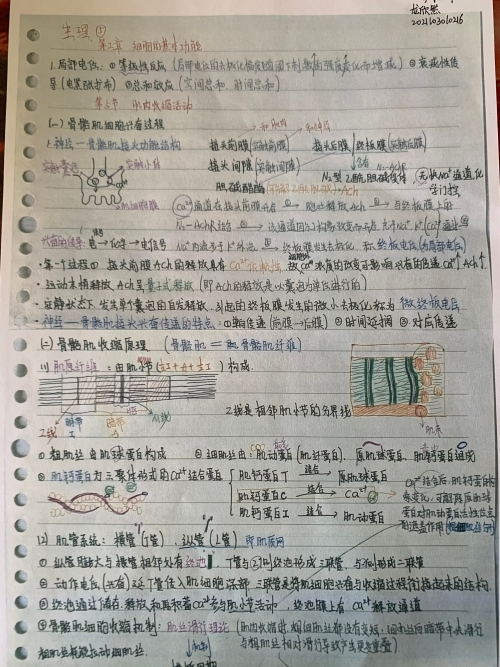 龙欣然
202110303016
生理①
第二章 细胞的基本功能
1.局部电位：①等级性反应（局部电位的去极化幅度随阈下刺激的强度变化而增减）②衰减性传
导（电紧张扩布）③总和效应（空间总和、时间总和）
第三节 肌肉收缩活动
(一) 骨骼肌细胞兴奋过程
1.神经—骨骼肌接头功能结构
接头前膜（突触前膜） 接头后膜：终板膜（突触后膜）
突触囊泡 突触小体
接头间隙（突触间隙） 含有
N₂型乙酰胆碱受体
胆碱酯酶 Ach
肌细胞膜
Ca²⁺通道在接头前膜开启 → 胞吐释放Ach → 与终板膜上的
N₂-AchR结合 → 该通道 允许Na⁺、K⁺
兴奋的传导：电→化学→电信号 Na⁺内流多于K⁺外流 → 终板膜发生去极化，称终板电位（局部电位）
·第一个过程① 接头前膜Ach的释放具有Ca²⁺依赖性，故Ca²⁺浓度的改变可影响兴奋的传递 Ca²⁺↑ Ach↑
·运动末梢释放Ach呈量子式释放（即Ach的释放是以囊泡为单位进行的）
·安静状态下发生单个囊泡的自发释放，引起的终板膜发生的微小去极化称为微终板电位
·神经—骨骼肌接头兴奋传递的特点：①单向传递（前膜→后膜）②时间延搁 ③
(二) 骨骼肌收缩原理（骨骼肌 = 肌 骨骼肌纤维）
(1) 肌原纤维：由肌小节（½I+A+½I）构成．
Z线
M线
暗带
Z线是相邻肌小节的分界线
肌束
① 粗肌丝由肌球蛋白构成 ② 细肌丝由：肌动蛋白（肌纤蛋白）、原肌球蛋白、肌钙蛋白组成
③ 肌钙蛋白为三聚体形式的Ca²⁺结合蛋白
肌钙蛋白T 结合→ 原肌球蛋白
肌钙蛋白C 结合→ Ca²⁺
肌钙蛋白I 结合→ 肌动蛋白
Ca²⁺结合后，肌钙蛋白构
象变化，可解除原肌球
蛋白对肌动蛋白活性位点
的遮盖作用
(2) 肌管系统：横管（T管）、纵管（L管）即肌质网
① 纵管膨大与横管相邻处有终池 T管与2侧终池形成三联管，与1侧形成二联管
② 动作电位（兴奋）延T管传入肌细胞深部，三联管是将肌细胞兴奋与收缩过程衔接起来的结构．
③ 终池通过储存、释放和再积蓄Ca²⁺参与肌小节活动，终池膜上有Ca²⁺释放通道
④ 骨骼肌细胞收缩机制：肌丝滑行理论（肌肉收缩时，粗细肌丝都没有变短，细肌丝向暗带中央滑行
与粗肌丝相对滑行导致产生更多重叠）
粗肌丝 拖动细肌丝．